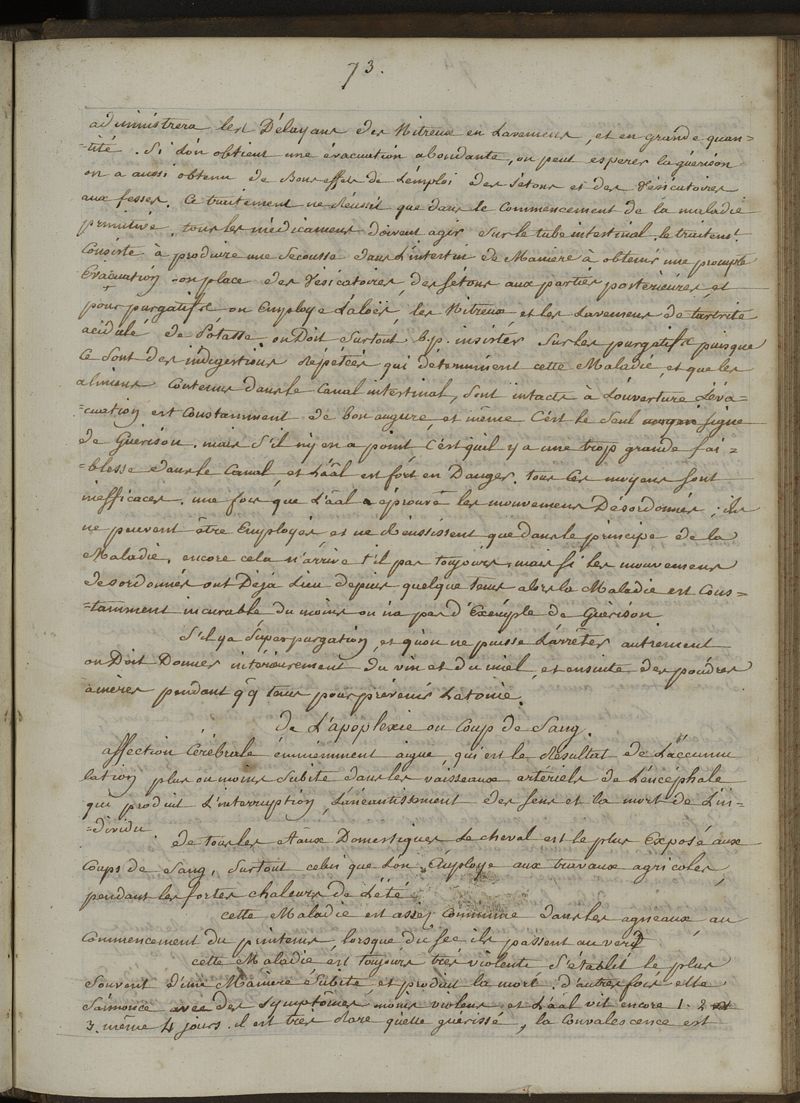 73.
administrera les Délayans des Nitreux en Lavemens, et en grande quan=
=tité. Si l'on obtient une évacuation abondante, on peut esperer la guérison
on a aussi obtenu de Bons effets de L'emploi des Sétons et des Vésicatoires
aux fesses. Ce traitement ne Réussit que dans le Commencement de la maladie
primitive. tous les médicamens doivent agir sur le tube intestinal. le traitemt.
Consiste à produire une secousse dans L'intestin de Maniere à obtenir une prompte
Evacuation on place des Vésicatoires, des sétons aux parties postérieures, et
pour purgatifs on Employe L'aloës, les Nitreux et les Lavemens de tartrite
acidulé de Potasse, on Doit Surtout b.p. insister Sur les purgatifs puisque
Ce Sont des indigestions Répétées qui déterminent cette Maladie et que les
alimens Contenus dans le Canal intestinal, Sont intacts à L'ouverture L'éva=
=cuation est Constamment de bon augure, et même C'est le Seul signe
de Guérison. mais S'il n'y en a point C'est qu'il y a une trop grande fai=
=blesse dans le Canal, et L'aāl est fort en Danger. tous Ces moyens Sont
inefficaces. une fois que L'aāl a éprouvé les mouvemens Désordonnés; ils
ne peuvent être Employés, et ne Réussissent que dans le principe de la
Maladie, encore cela n'arrive t'il pas toujours, mais si les mouvemens
desordonnés ont Déjà Lieu depuis quelque tems alors la Maladie est Cons=
=tamment incurable du moins on n'a pas d'Exemple de Guérison.
S'il y a Superpurgation, et qu'on ne puisse L'arrêter autrement
on Doit Donner intérieurement du vin et du miel, et ensuite des poudres
amères pendant qq tems pour prévenir L'atonie.
de L'apoplexie ou Coup de Sang.
affection Cérébrale éminemment aigue, qui est le Résultat de L'accumu
lation plus ou moins Subite dans les vaisseaux artériels de L'encéphale
qui produit L'interruption, L'anéantissement des sens et la mort de L'in=
=dividu.
De tous les aāux Domestiques Le cheval est le plus Exposé aux
Coups de Sang, Surtout celui que L'on Employe aux travaux agricoles,
pendant les fortes chaleurs de L'été.
cette Maladie est assez Commune dans les agneaux, au
Commencement du printems, lorsque du sec ils passent au verd
cette Maladie est toujours très violente S'établit le plus
Souvent d'une Manière Subite et produit la mort. d'autres fois elle
S'annonce avec des Symptômes moins violens et L'aāl vit encore 1. 2
3. même 4 jours. il est très Rare qu'elle guérisse, la Convalescence est